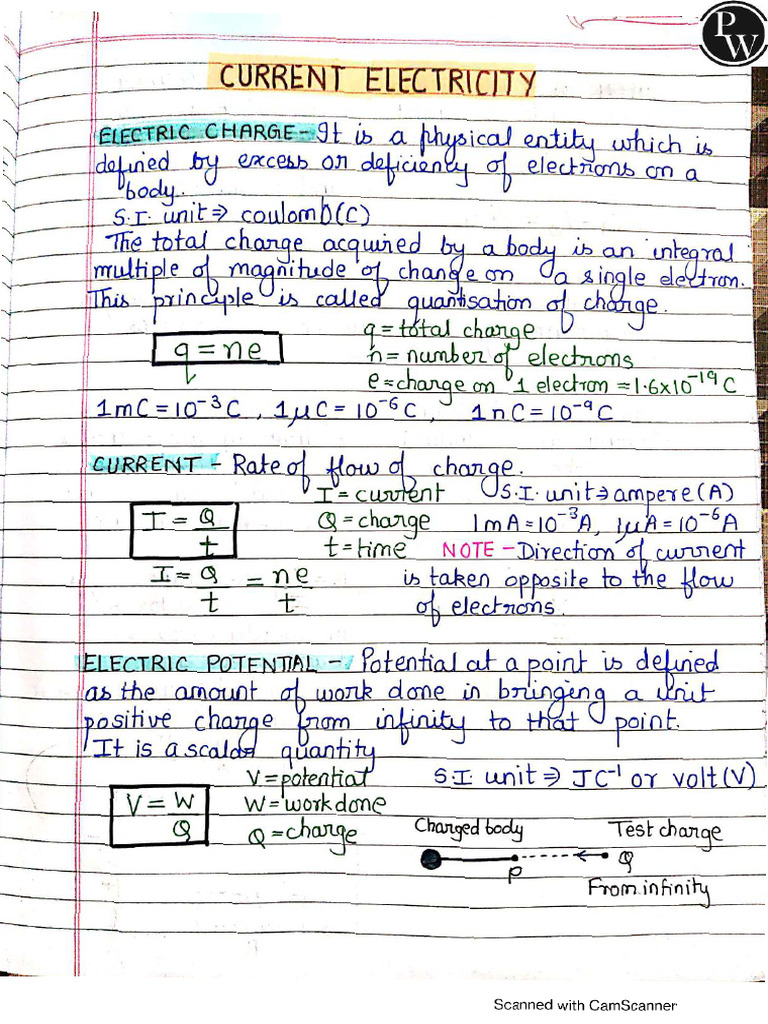 PW
CURRENT ELECTRICITY
ELECTRIC CHARGE - It is a physical entity which is
defined by excess or deficiency of electrons on a
body.
S.I. unit ⇒ coulomb(C)
The total charge acquired by a body is an integral
multiple of magnitude of change on a single electron.
This principle is called quantisation of charge.
q = total charge
q = ne
n = number of electrons
e = charge on 1 electron = 1.6x10⁻¹⁹ C
1mC = 10⁻³ C , 1μC = 10⁻⁶ C , 1nC = 10⁻⁹ C
CURRENT - Rate of flow of charge.
I = current S.I. unit ⇒ ampere (A)
I = Q/t
Q = charge 1mA = 10⁻³A, 1μA = 10⁻⁶ A
t = time NOTE - Direction of current
I = Q/t = ne/t
is taken opposite to the flow
of electrons.
ELECTRIC POTENTIAL - Potential at a point is defined
as the amount of work done in bringing a unit
positive charge from infinity to that point.
It is a scalar quantity
V = potential S.I. unit ⇒ JC⁻¹ or volt (V)
V = W/Q
W = work done
Q = charge
Charged body Test charge
P Q
From infinity
Scanned with CamScanner